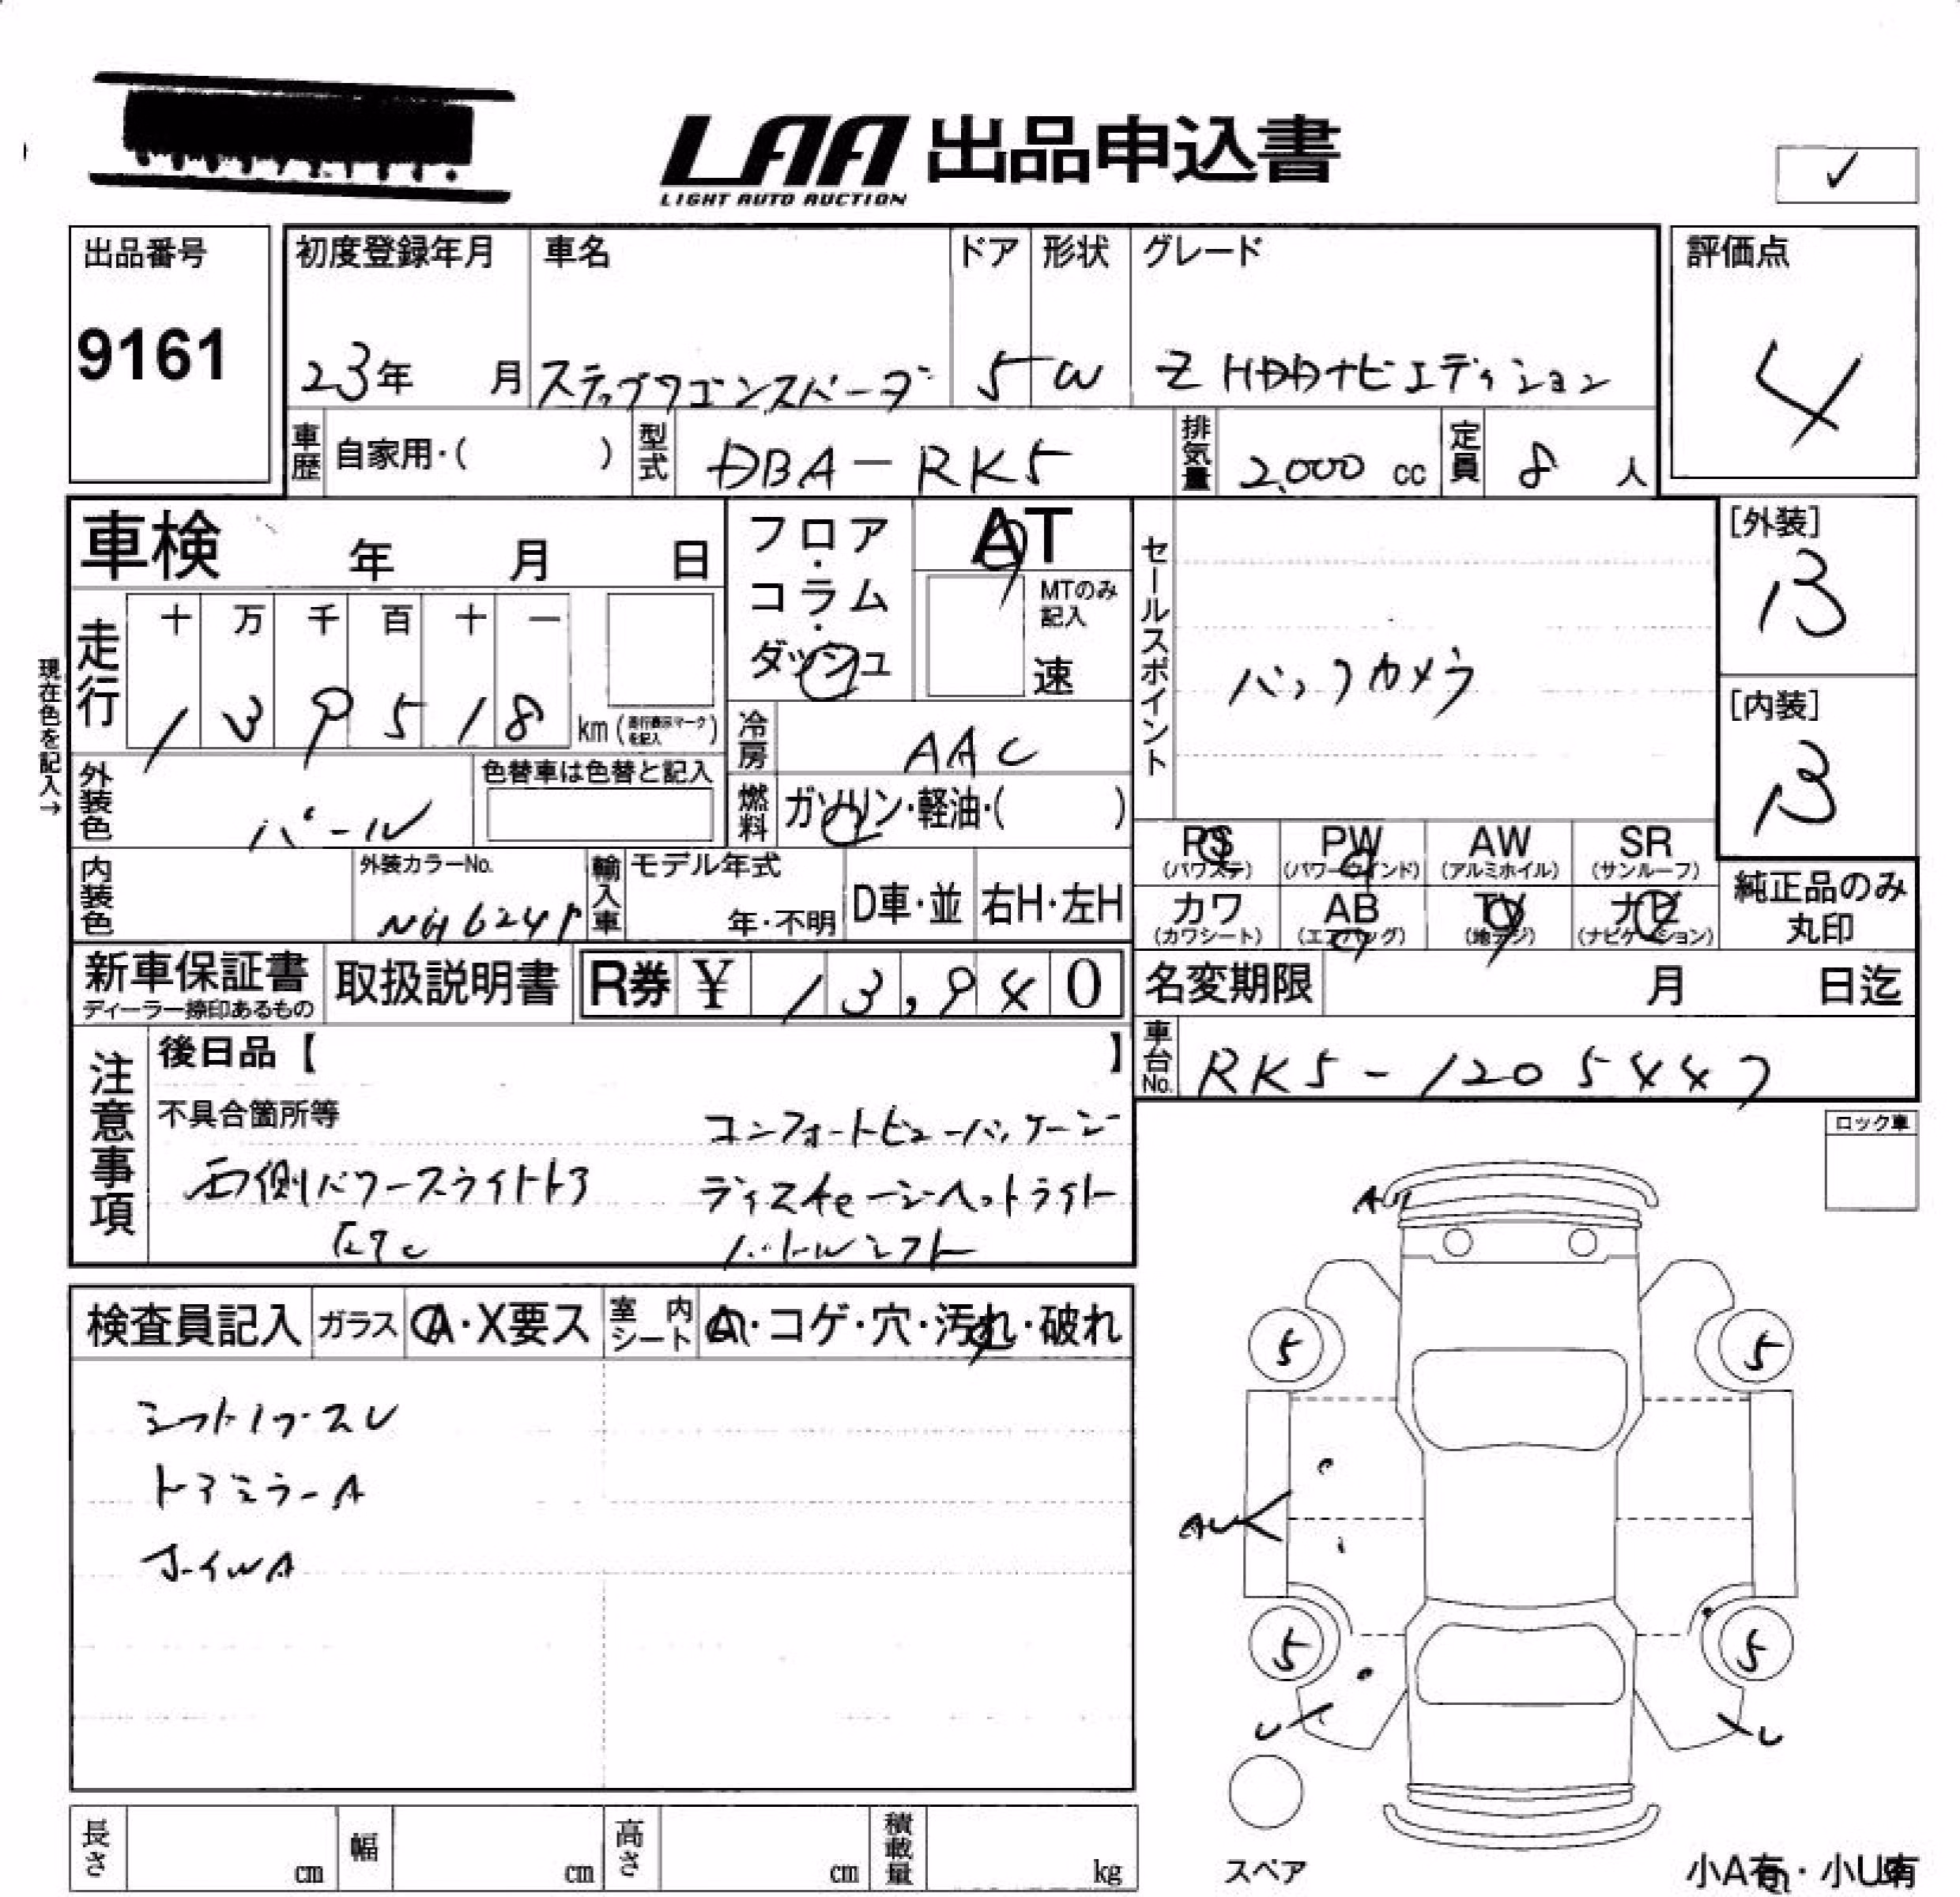 LAA 出品申込書
LIGHT AUTO AUCTION
✓
出品番号
9161
初度登録年月 車名 ドア 形状 グレード
23年 月 ステップワゴンスパーダ 5 W Z HDDナビエディション
評価点
4
車歴 自家用・( ) 型式 DBA-RK5 排気量 2,000 cc 定員 8 人
車検 年 月 日
フロア・コラム・ダッシュ
AT
MTのみ記入
速
セールスポイント
バックカメラ
[外装]
B
[内装]
B
現在色を記入→
走行 十 万 千 百 十 一
1 3 9 5 1 8 km (走行表示マークを記入)
冷房 AAC
燃料 ガソリン・軽油・( )
外装色 パール
色替車は色替と記入
PS (パワステ) PW (パワーウインド) AW (アルミホイル) SR (サンルーフ)
カワ (カワシート) AB (エアバッグ) TV (地デジ) ナビ (ナビゲーション)
純正品のみ丸印
内装色 外装カラーNo. NH624P
輸入車 モデル年式 年・不明 D車・並 右H・左H
新車保証書 ディーラー捺印あるもの
取扱説明書
R券 ¥ 13,940
名変期限 月 日迄
車台No. RK5-1205447
注意事項
後日品【 】
不具合箇所等
コンフォートビューパッケージ
両側パワースライドドア
ディスチャージヘッドライト
ETC
パドルシフト
ロック車
検査員記入 ガラス A・X要ス 室内シート A・コゲ・穴・汚れ・破れ
シフトノブスレ
ドアミラーA
ホイルA
AU
5 5
AU
5 5
U U
スペア
小A有・小U有
長さ cm 幅 cm 高さ cm 積載量 kg